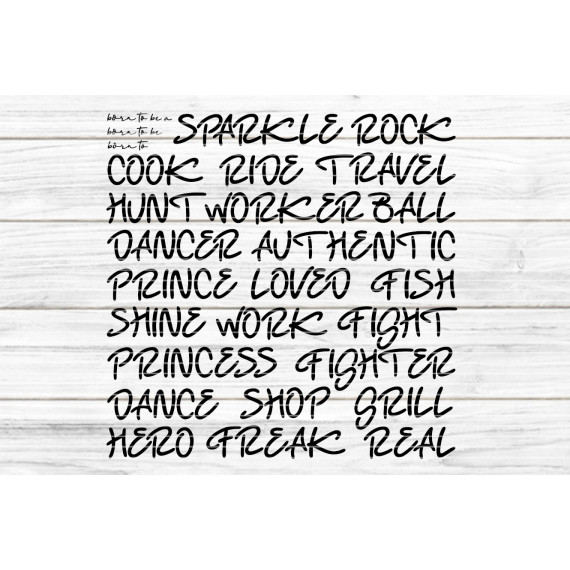 born to be a
born to be
born to
SPARKLE ROCK
COOK RIDE TRAVEL
HUNT WORKER BALL
DANCER AUTHENTIC
PRINCE LOVED FISH
SHINE WORK FIGHT
PRINCESS FIGHTER
DANCE SHOP GRILL
HERO FREAK REAL